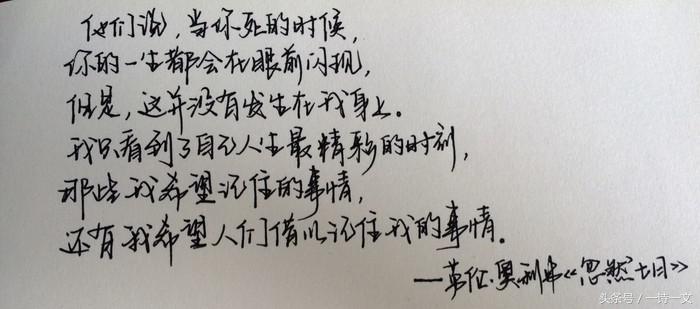 他们说，当你死的时候，
你的一生都会在眼前闪现，
但是，这并没有发生在我身上。
我只看到了自己人生最精彩的时刻，
那些我希望记住的事情，
还有我希望人们借以记住我的事情。
——劳伦·奥利弗《忽然七日》
头条号 / 一诗一文